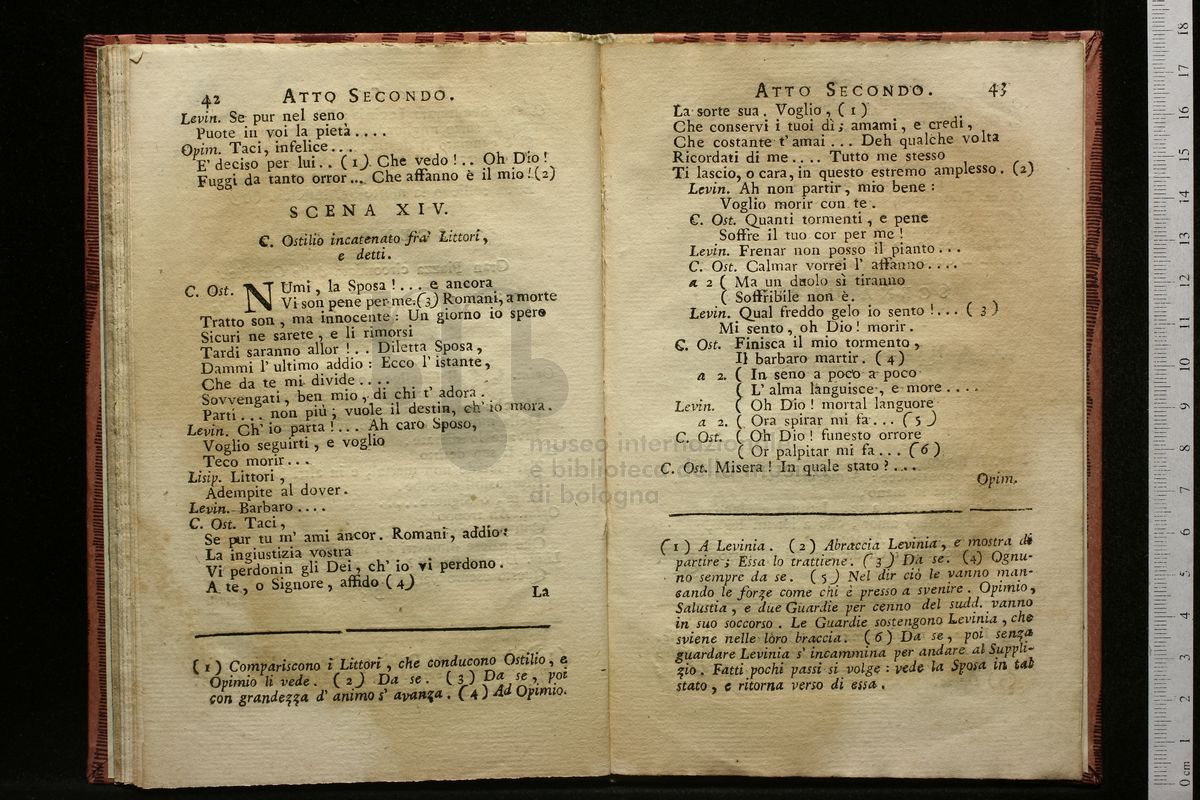 42 ATTO SECONDO.
Levin. Se pur nel seno
Puote in voi la pietà ....
Opim. Taci, infelice...
E' deciso per lui.. (1) Che vedo!.. Oh Dio!
Fuggi da tanto orror... Che affanno è il mio! (2)
SCENA XIV.
C. Ostilio incatenato fra' Littori,
e detti.
C. Ost. NUmi, la Sposa!... e ancora
Vi son pene per me. (3) Romani, a morte
Tratto son, ma innocente: Un giorno io spero
Sicuri ne sarete, e li rimorsi
Tardi saranno allor!.. Diletta Sposa,
Dammi l'ultimo addio: Ecco l'istante,
Che da te mi divide....
Sovvengati, ben mio, di chi t'adora.
Parti... non più; vuole il destin, ch'io mora.
Levin. Ch'io parta!... Ah caro Sposo,
Voglio seguirti, e voglio
Teco morir...
Lisip. Littori,
Adempite al dover.
Levin. Barbaro....
C. Ost. Taci,
Se pur tu m'ami ancor. Romani, addio:
La ingiustizia vostra
Vi perdonin gli Dei, ch'io vi perdono.
A te, o Signore, affido (4)
La
(1) Compariscono i Littori, che conducono Ostilio, e
Opimio li vede. (2) Da se. (3) Da se, poi
con grandezza d'animo s'avanza. (4) Ad Opimio.
ATTO SECONDO. 43
La sorte sua. Voglio, (1)
Che conservi i tuoi dì; amami, e credi,
Che costante t'amai... Deh qualche volta
Ricordati di me.... Tutto me stesso
Ti lascio, o cara, in questo estremo amplesso. (2)
Levin. Ah non partir, mio bene:
Voglio morir con te.
C. Ost. Quanti tormenti, e pene
Soffre il tuo cor per me!
Levin. Frenar non posso il pianto...
C. Ost. Calmar vorrei l'affanno....
a 2 ( Ma un duolo sì tiranno
( Soffribile non è.
Levin. Qual freddo gelo io sento!... (3)
Mi sento, oh Dio! morir.
C. Ost. Finisca il mio tormento,
Il barbaro martir. (4)
a 2. ( In seno a poco a poco
( L'alma languisce, e more....
Levin. ( Oh Dio! mortal languore
a 2. ( Ora spirar mi fa... (5)
C. Ost. ( Oh Dio! funesto orrore
( Or palpitar mi fa... (6)
C. Ost. Misera! In quale stato?...
Opim.
(1) A Levinia. (2) Abraccia Levinia, e mostra di
partire; Essa lo trattiene. (3) Da se. (4) Ognu-
no sempre da se. (5) Nel dir ciò le vanno man-
cando le forze come chi è presso a svenire. Opimio,
Salustia, e due Guardie per cenno del sudd. vanno
in suo soccorso. Le Guardie sostengono Levinia, che
sviene nelle loro braccia. (6) Da se, poi senza
guardare Levinia s'incammina per andare al Suppli-
zio. Fatti pochi passi si volge: vede la Sposa in tal
stato, e ritorna verso di essa.
museo internazionale
e biblioteca della musica
di bologna
0 cm 1 2 3 4 5 6 7 8 9 10 11 12 13 14 15 16 17 18